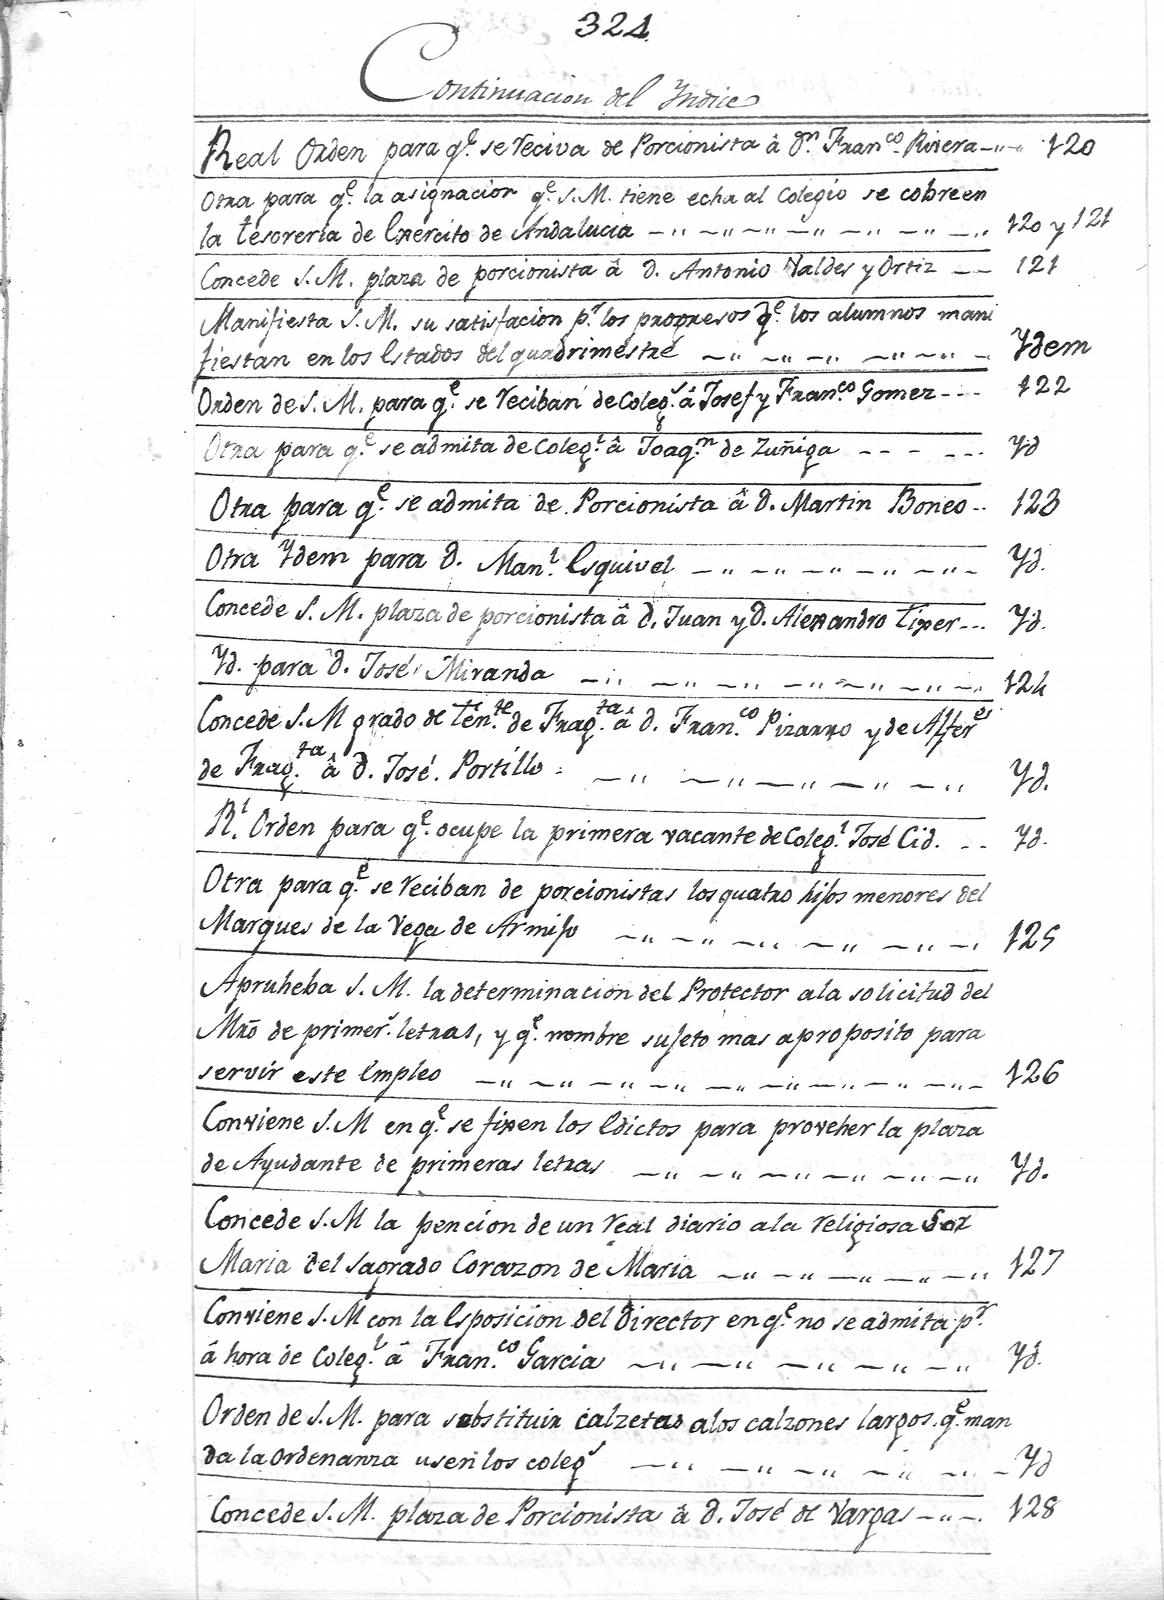 324
Continuacion del Yndice
Real Orden para q.e se reciva de Porcionista â d.n Fran.co Rivera 120
Otra para q.e la asignacion q.e S.M. tiene echa al Colegio se cobre en
la tesoreria de Exercito de Andalucia 120 y 121
Concede S.M. plaza de porcionista â d. Antonio Valdes y Ortiz 121
Manifiesta S.M. su satisfacion p.r los progresos q.e los alumnos mani
fiestan en los Estados del quadrimestre Ydem
Orden de S.M. para q.e se reciban de Coleg.s â Josef y Fran.co Gomez 122
Otra para q.e se admita de Coleg.l â Joaq.n de Zuñiga Yd
Otra para q.e se admita de Porcionista â d. Martin Boneo 123
Otra Ydem para d. Man.l Esquivel Yd.
Concede S.M. plaza de porcionista â d. Juan y d. Alexandro Tiper Yd.
Yd. para d. José Miranda 124
Concede S.M grado de ten.te de Frag.ta â d. Fran.co Pizarro y de Alfer.es
de Frag.ta â d. José Portillo Yd.
R.l Orden para q.e ocupe la primera vacante de Coleg.l José Cid. Yd.
Otra para q.e se reciban de porcionistas los quatro hijos menores del
Marques de la Vega de Armijo 125
Aprueheba S.M. la determinacion del Protector ala solicitud del
Mro de primer.s letras, y q.e nombre sujeto mas aproposito para
servir este Empleo 126
Conviene S.M en q.e se fixen los Edictos para proveher la plaza
de Ayudante de primeras letras Yd.
Concede S.M la pencion de un real diario ala religiosa Sor
Maria del Sagrado Corazon de Maria 127
Conviene S.M con la Esposicion del Director en q.e no se admita p.r
â hora de Coleg.l â Fran.co Garcia Yd.
Orden de S.M. para substituir calzetas alos calzones largos q.e man
da la Ordenanza usen los coleg.s Yd
Concede S.M. plaza de Porcionista â d. José de Vargas 128